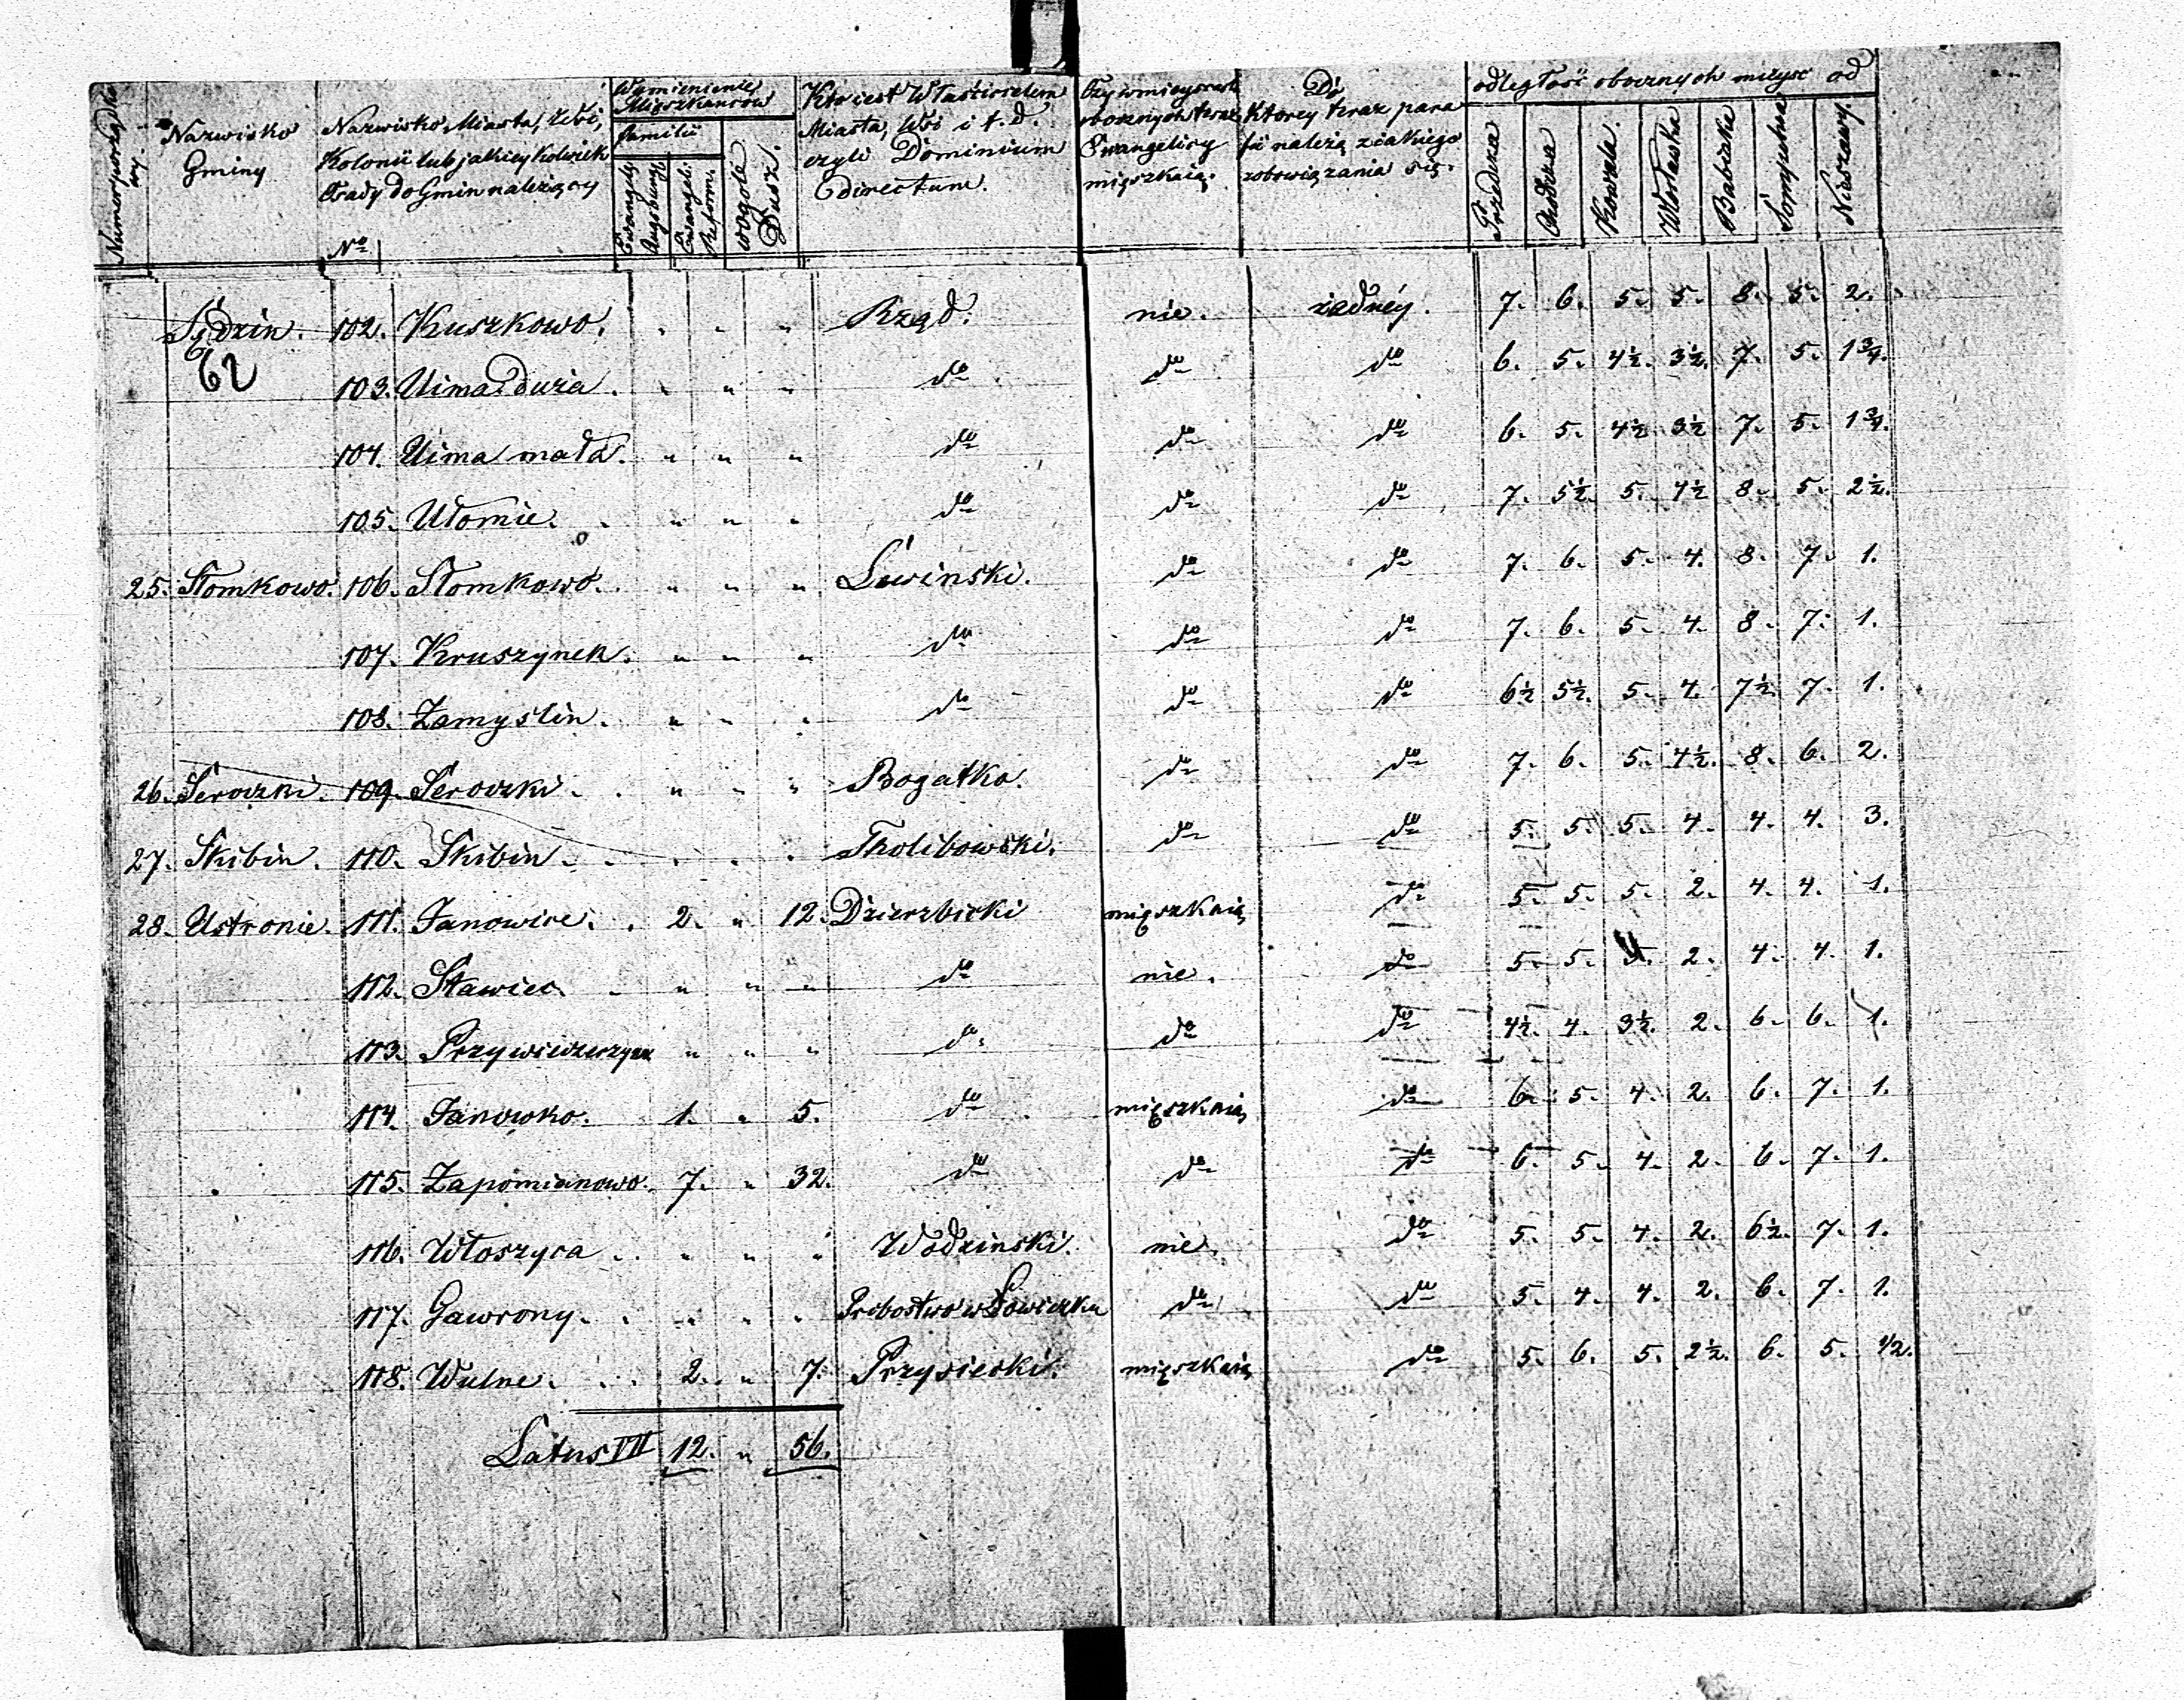 Numer porządkowy.
Nazwisko Gminy
Nazwisko Miasta, Wsi, Kolonii lub jakiey kolwiek Osady do Gmin należący
No
Wymienienie Mięszkancow
familii
Ewangely Augsburg.
Ewangeli. Reform.
wogole Dusz.
Kto iest Właścicielem Miasta, Wsi i t. d. czyli Dominium directum.
Czy w mieyscach obocznych teraz Ewangelicy mięszkaią.
Do ktorey teraz parafii należą z iakiego zobowiązania się.
odległość obocznych mieysc od
Przedecza Chodcza Kowala. Włocławka Babiaka Sompolna Nieszawy.
Sędzin. 102. Kuszkowo. " " " Rząd. nie. żadnéy. 7. 6. 5. 5. 8. 5. 2.
62
103. Uima duża. " " " do do do 6. 5. 4½. 3½. 7. 5. 1¾.
104. Uima mała. " " " do do do 6. 5. 4½ 3½ 7. 5. 1¾.
105. Utomie. " " " do do do 7. 5½. 5. 4½ 8. 5. 2½.
25. Słomkowo. 106. Słomkowo. " " " Lewinski. do do 7. 6. 5. 4. 8. 7. 1.
107. Kruszynek. " " " do do do 7. 6. 5. 4. 8. 7. 1.
108. Zamyslin. " " " do do do 6½ 5½. 5. 4. 7½. 7. 1.
26. Seroczki. 109. Seroczki. " " " Bogatko. do do 7. 6. 5. 4½. 8. 6. 2.
27. Skibin. 110. Skibin. " " " Tholibowski. do do 5. 5. 5. 4. 4. 4. 3.
28. Ustronie. 111. Janowice. 2. " 12. Dzierzbicki mięszkaią do 5. 5. 5. 2. 4. 4. 1.
112. Stawiec. " " " do nie. do 5. 5. 5. 2. 4. 4. 1.
113. " " " do do do 4½. 4. 3½. 2. 6. 6. 1.
114. Janowko. 1. " 5. do mięszkaią do 6. 5. 4. 2. 6. 7. 1.
115. Zapomianowo. 7. " 32. do do do 6. 5. 4. 2. 6. 7. 1.
116. Włoszyca. " " " Wodzinski. nie. do 5. 5. 4. 2. 6½. 7. 1.
117. Gawrony. " " " Probostwo w Łowiczku do do 5. 4. 4. 2. 6. 7. 1.
118. Wulne. 2. " 7. Przysiecki. mięszkaią do 5. 6. 5. 2½. 6. 5. ½.
Latus VII 12. " 56.